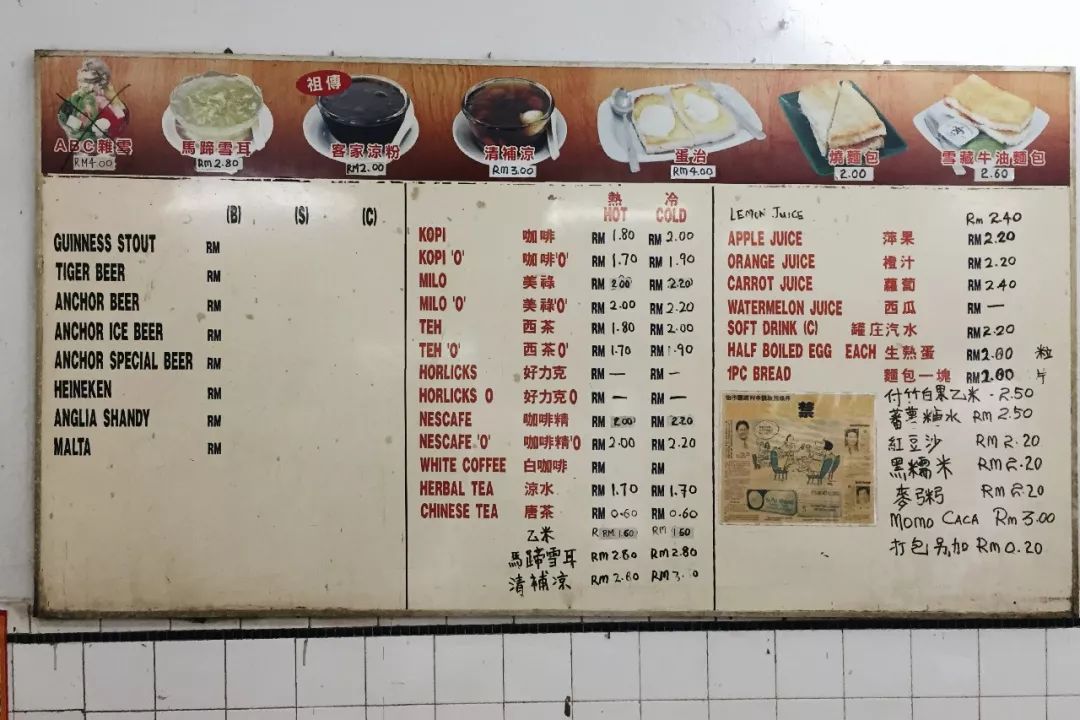 ABC雜雪
RM4.00
馬蹄雪耳
RM2.80
祖傳
客家涼粉
RM2.00
清補涼
RM3.00
蛋治
RM4.00
燒麵包
2.00
雪藏牛油麵包
2.60
(B) (S) (C)
GUINNESS STOUT RM
TIGER BEER RM
ANCHOR BEER RM
ANCHOR ICE BEER RM
ANCHOR SPECIAL BEER RM
HEINEKEN RM
ANGLIA SHANDY RM
MALTA RM
熱 冷
HOT COLD
KOPI 咖啡 RM 1.80 RM 2.00
KOPI 'O' 咖啡'O' RM 1.70 RM 1.90
MILO 美祿 RM 2.00 RM 2.20
MILO 'O' 美祿'O' RM 2.00 RM 2.20
TEH 西茶 RM 1.80 RM 2.00
TEH 'O' 西茶'O' RM 1.70 RM 1.90
HORLICKS 好力克 RM — RM —
HORLICKS O 好力克O RM — RM —
NESCAFE 咖啡精 RM 2.00 RM 2.20
NESCAFE 'O' 咖啡精'O RM 2.00 RM 2.20
WHITE COFFEE 白咖啡 RM RM
HERBAL TEA 涼水 RM 1.70 RM 1.70
CHINESE TEA 唐茶 RM 0.60 RM 0.60
乙米 RM 1.60 RM 1.60
馬蹄雪耳 RM 2.80 RM 2.80
清補凉 RM
LEMON JUICE Rm 2.40
APPLE JUICE 萍果 RM 2.20
ORANGE JUICE 橙汁 RM 2.20
CARROT JUICE 蘿蔔 RM 2.40
WATERMELON JUICE 西瓜 RM —
SOFT DRINK (C) 罐庄汽水 RM 2.20
HALF BOILED EGG EACH 生熟蛋 RM 粒
1PC BREAD 麵包一塊 RM 片
付竹白果乙米 - 2.50
蕃薯糖水 RM 2.50
紅豆沙 RM 2.20
黑糯米 RM 2.20
麥粥 RM 2.20
MOMO CACA Rm 3.00
打包另加 Rm 0.20
禁